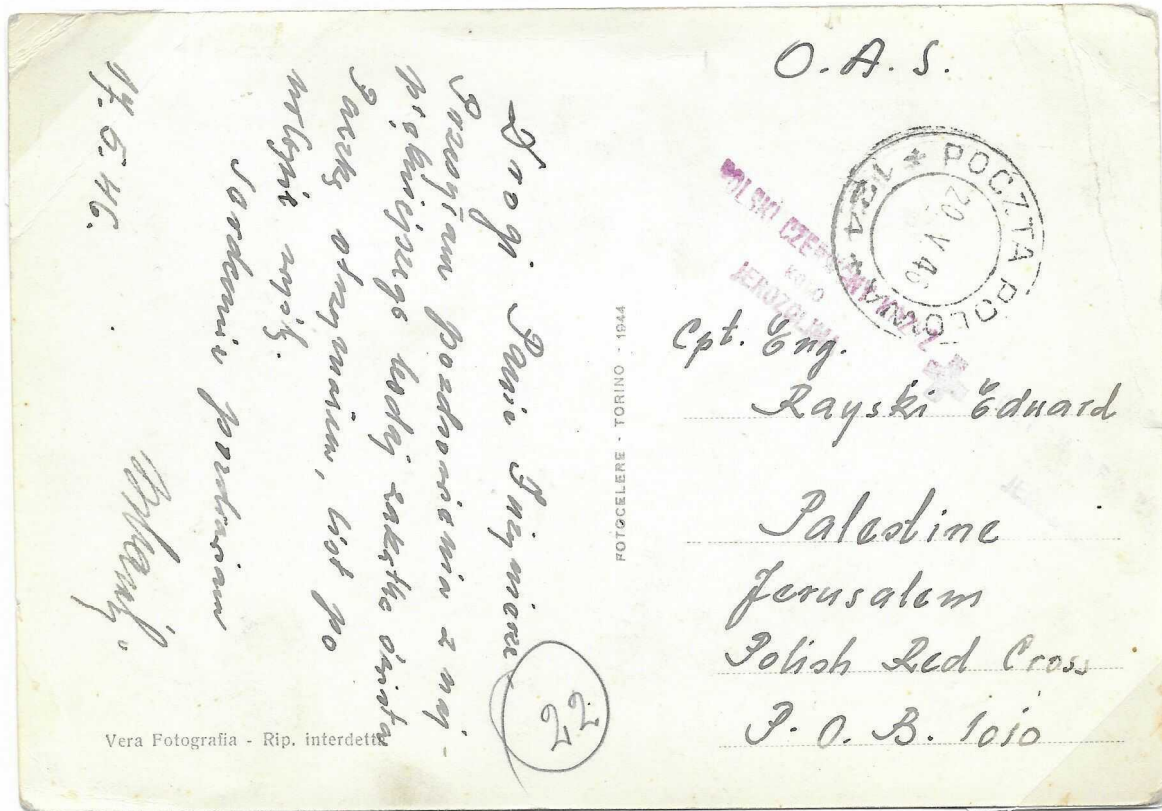 O. A. S.
POCZTA POLOWA * 154 *
20 V 46
POLSKI CZERWONY KRZYŻ
KOŁO
JEROZOLIMA
Cpt. Eng.
Rayski Eduard
Palestine
Jerusalem
Polish Red Cross
P. O. B. 1010
FOTOCELERE - TORINO - 1944
Drogi Panie Inżynierze
Pozdrowienia z naj-
piękniejszego zakątka świata
Paczkę otrzymałem, list po
wyślę.
Serdecznie pozdrawiam
17. 5. 46.
22
Vera Fotografia - Rip. interdetta